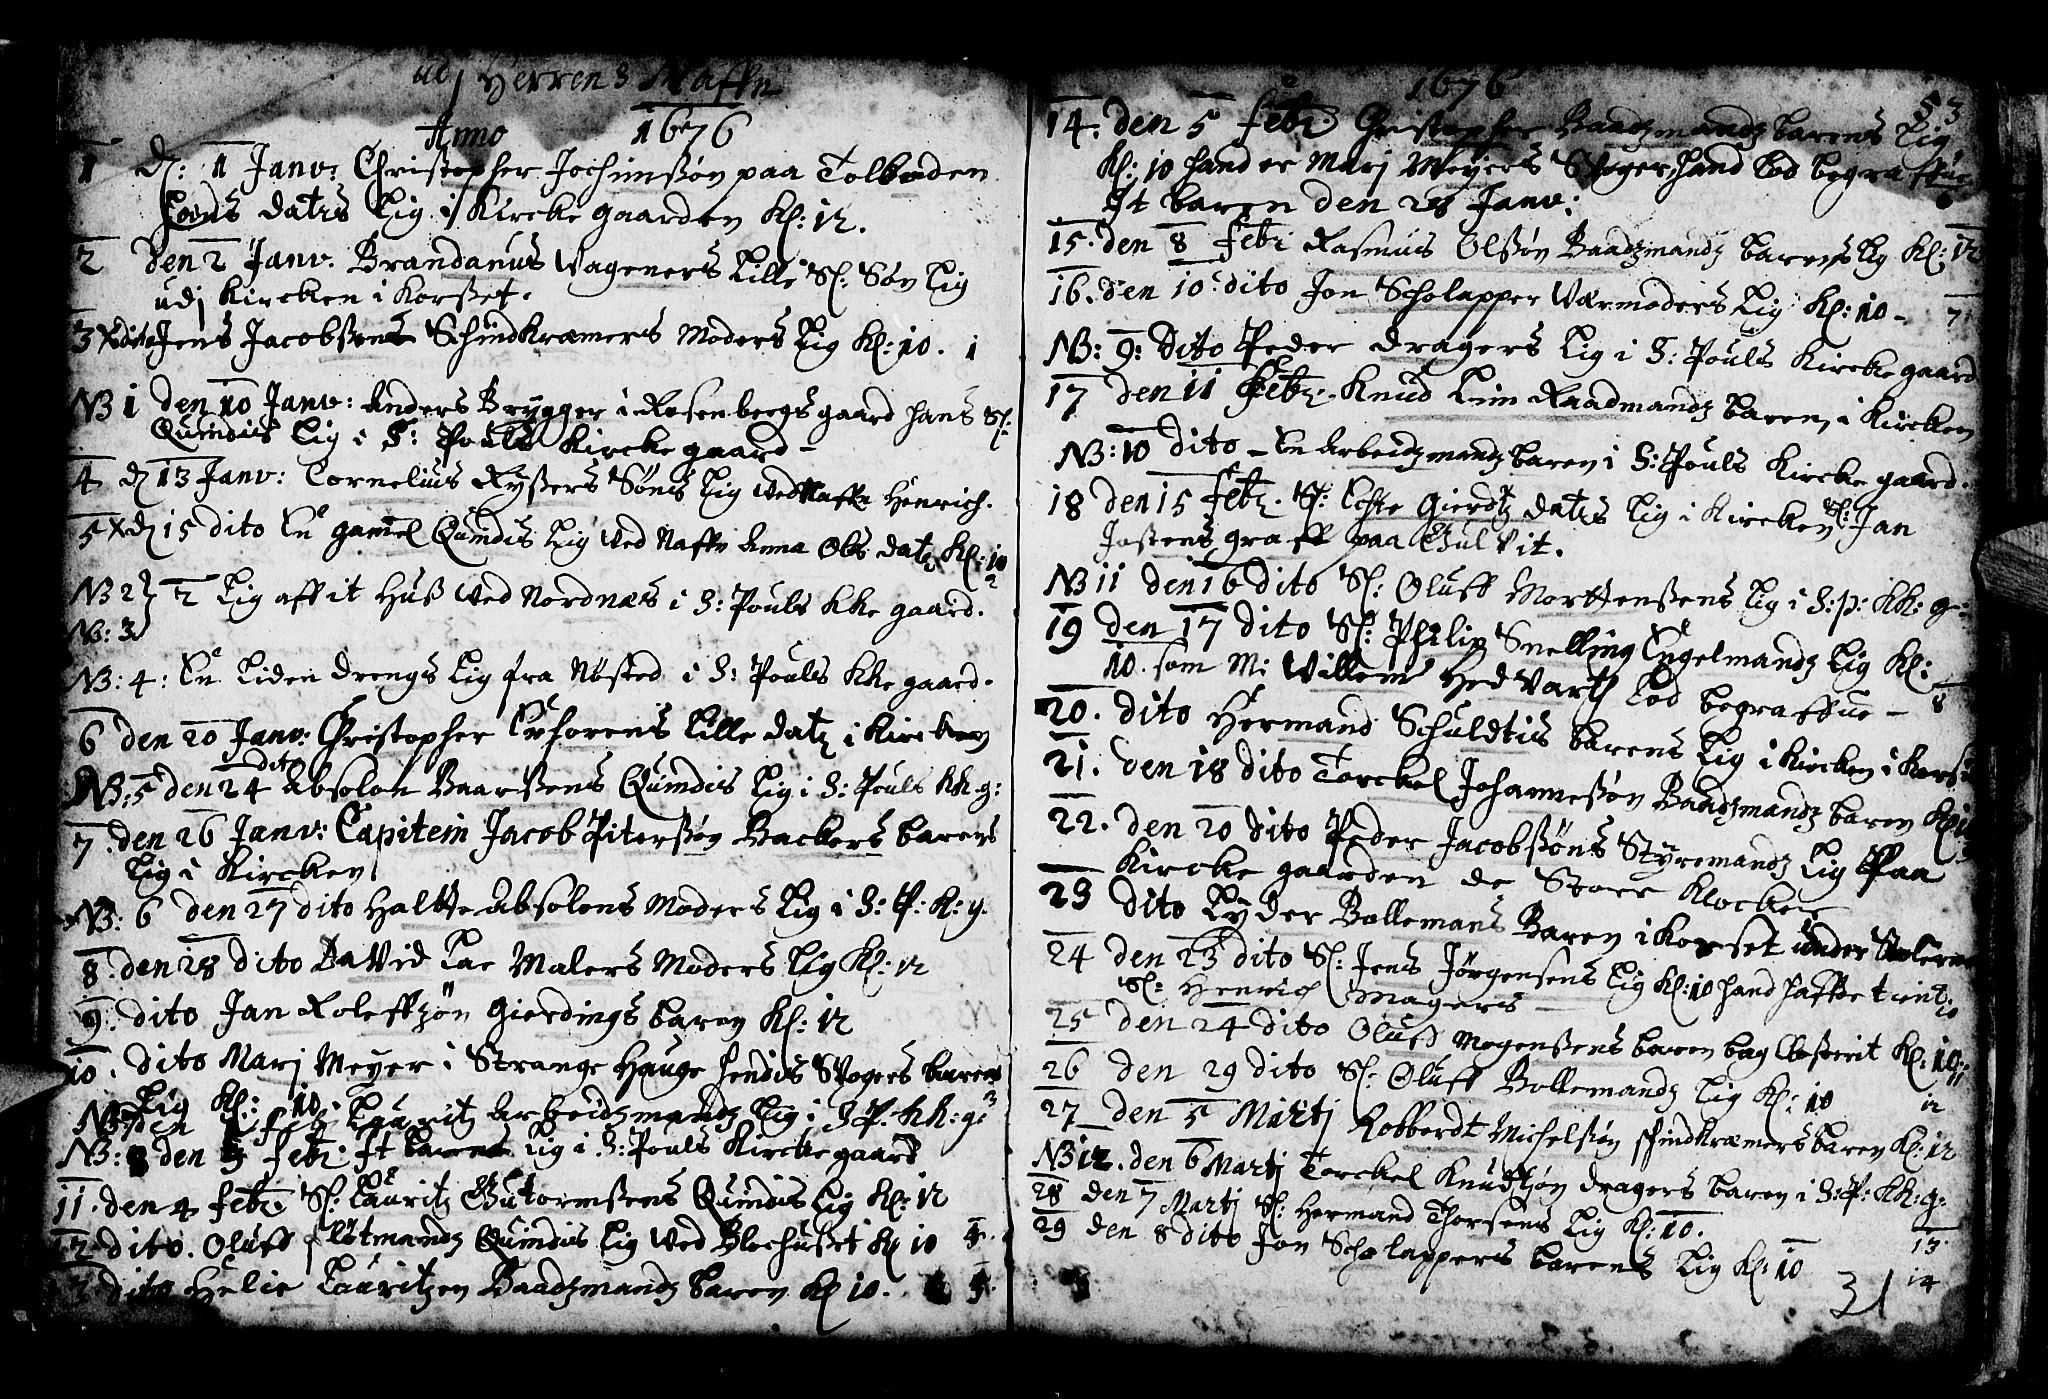 udj Herrens Naffn
Anno 1676
1 d: 1 Janv: Christopher Jochimssøn paa Tolboden
hans datters Lig i Kircke gaarden Kl: 12.
2 den 2 Janv. Brandanus Wageners Lille Sl: Søn Lig
udj Kircken i Korsset.
3 dito Jens Jacobssens Schindkræmers Moders Lig Kl: 10. 1
NB 1 den 10 Janv: Anders Brygger i Rosenbergs gaard hans Sl:
Quindis Lig i S: Pouls Kircke gaard
4 d 13 Janv: Cornelius Ryssers Søns Lig ved Naffn Henrich.
5 d 15 dito En gamel Quindis Lig ved Naffn Anna Ols datr Kl: 10
2
NB 2 2 Lig aff it Huss ved Nordnæs i S: Pouls KKe gaard.
NB: 3
NB: 4: En Liden drengs Lig fra Nøsted i S: Pouls KKe gaard.
6 den 20 Janv: Christopher Lille datr i Kircken
NB: 5 den 24 dito Absolon Baarssens Quindis Lig i S: Pouls KK. g:
7. den 26 Janv: Capitein Jacob Piterssøn Backers barens
Lig i Kircken
NB: 6 den 27 dito Absolons Moders Lig i S: P: K: g.
8. den 28 dito David Malers Moders Lig Kl: 12
9. dito Jan Roleffzøn Gierdings baren Kl: 12
10. dito Marj Meyer i Strange Hauge hendis Stogers barens
Lig Kl: 10. 3
NB 7 den 1 feb: Lauritz Arbeidzmandz Lig i S. P. KK: g:
NB: 8 den 3 febr: It barens Lig i S: Pouls Kircke gaard
11. den 4 febr. Sl: Lauritz Gutormssens Quindis Lig Kl: 12
12 dito. Oluff Quindis Lig ved Blochusset Kl 10 4.
13 dito Helie Lauritzen Baadzmandz baren Kl 10. 5.
1676
53
14. den 5 febr. Christopher Baadzmandz barens Lig
Kl: 10 hand er Marj Meyers Stoger, hand lod begraffue
It baren den 28 Janv:
15. den 8 febr Rasmus Olssøn Baadzmandz barens Lig Kl: 12
16. den 10 dito Jon Scholapper Værmoders Lig Kl: 10 - 7
NB: 9: dito Peder dragers Lig i S: Pouls Kircke gaard
17 den 11 febr. Knud Lim Raadmandz baren, i Kircken
NB: 10 dito - En Arbeidzmandz baren i S: Pouls Kircke gaard.
18 den 15 febr. Sl: Gierdtz datrs Lig i Kircken Sl: Jan
Jostens graff paa Gulvit.
NB 11 den 16 dito Sl: Oluff Morttenssens Lig i S: p: KK: g:
19 den 17 dito Sl: Philip Snelling Engelmandz Lig Kl:
10. som M: Willem Hedvarth lod begraffue - 8
20. dito Hermand Schuldtis barens Lig i Kircken i Korsset
21. den 18 dito Torckel Johannessøn Baadzmandz baren Kl
22. den 20 dito Peder Jacobssøns Styremandz Lig Paa
Kircke gaarden de Store Klocker
23 dito Lyder Bollemans Baren i Korset under
24 den 23 dito Sl: Jens Jørgensens Lig Kl: 10 hand haffde tient
Sl: Henrich Magers 10
25 den 24 dito Oluff Mogenssens baren bag Closterit Kl: 10: 11
26 den 29 dito Sl: Oluff Bollemandz Lig Kl: 10 12
27 den 5 Martj Robberdt Michelssøn schindkræmers baren Kl: 12
NB 12. den 6 Martj Torckel Knudsøn dragers baren i S: P: KK: g:
28 den 7 Martj Sl: Hermand Thorsens Lig Kl: 10. 13
29 den 8 dito Jon Scholappers barens Lig Kl: 10 14
31